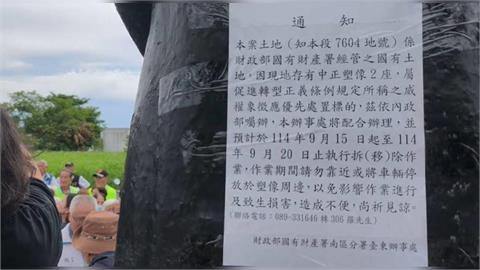 通知
本案土地（知本段7604地號）係
財政部國有財產署經管之國有土
地。因現地存有中正塑像2座，屬
促進轉型正義條例規定所稱之威
權象徵應優先處置標的，茲依內政
部囑辦，本辦事處將配合辦理，並
預計於114年9月15日起至114
年9月20日止執行拆（移）除作
業，作業期間請勿靠近或將車輛停
放於塑像周邊，以免影響作業進行
及致生損害，造成不便，尚祈見諒。
（聯絡電話：089-331646轉306羅先生）
財政部國有財產署南區分署臺東辦事處